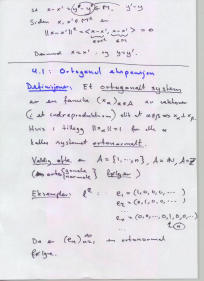 så x-x' = y'-y ∈ M, y'-y
Siden x, x' ∈ M^⊥ er
||x-x'||² = <x-x', x-x'> = 0
Dermed x=x' og y=y'.
4.1: Ortogonal ekspansjon
Definisjon: Et ortogonalt system
er en familie (x_α)_{α∈A} av vektorer
(i et indreprodukt) slik at α≠β ⇒ x_α ⊥ x_β
Hvis i tillegg ||x_α||=1 for alle α
kalles systemet ortonormalt.
Veldig ofte er A = {1,...,n}, A = ℕ, A=ℤ
(ortogonale normale følger)
Eksempler: ℓ²: e₁ = (1,0,0,0,...)
e₂ = (0,1,0,0,...)
e_n = (0,0,...,0,1,0,0,...)
Da er (e_n)_{n=1}^∞ en ortonormal
følge.